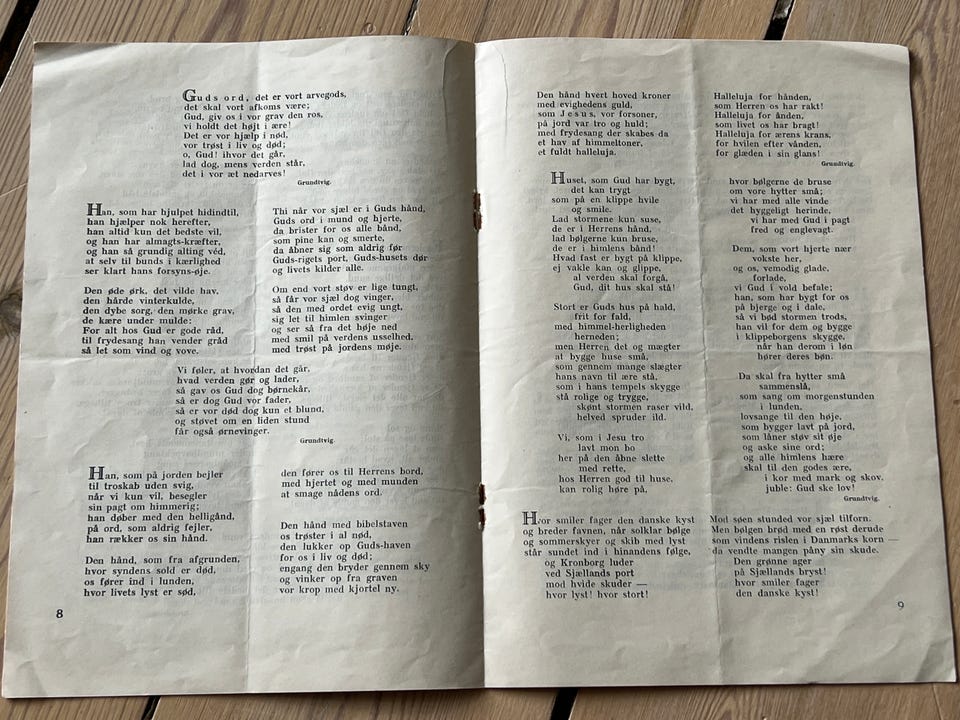 Guds ord, det er vort arvegods,
det skal vort afkoms være;
Gud, giv os i vor grav den ros,
vi holdt det højt i ære!
Det er vor hjælp i nød,
vor trøst i liv og død;
o, Gud! ihvor det går,
lad dog, mens verden står,
det i vor æt nedarves!
Grundtvig.
Han, som har hjulpet hidindtil,
han hjælper nok herefter,
han altid kun det bedste vil,
og han har almagts-kræfter,
og han så grundig alting véd,
at selv til bunds i kærlighed
ser klart hans forsyns-øje.
Den øde ørk, det vilde hav,
den hårde vinterkulde,
den dybe sorg, den mørke grav,
de kære under mulde:
For alt hos Gud er gode råd,
til frydesang han vender gråd
så let som vind og vove.
Thi når vor sjæl er i Guds hånd,
Guds ord i mund og hjerte,
da brister for os alle bånd,
som pine kan og smerte,
da åbner sig som aldrig før
Guds-rigets port, Guds-husets dør
og livets kilder alle.
Om end vort støv er lige tungt,
så får vor sjæl dog vinger,
så den med ordet evig ungt,
sig let til himlen svinger
og ser så fra det høje ned
med smil på verdens usselhed,
med trøst på jordens møje.
Vi føler, at hvordan det går,
hvad verden gør og lader,
så gav os Gud dog børnekår,
så er dog Gud vor fader,
så er vor død dog kun et blund,
og støvet om en liden stund
får også ørnevinger.
Grundtvig.
Han, som på jorden bejler
til troskab uden svig,
når vi kun vil, besegler
sin pagt om himmerig;
han døber med den helligånd,
på ord, som aldrig fejler,
han rækker os sin hånd.
Den hånd, som fra afgrunden,
hvor syndens sold er død,
os fører ind i lunden,
hvor livets lyst er sød,
den fører os til Herrens bord,
med hjertet og med munden
at smage nådens ord.
Den hånd med bibelstaven
os trøster i al nød,
den lukker op Guds-haven
for os i liv og død;
engang den bryder gennem sky
og vinker op fra graven
vor krop med kjortel ny.
8
Den hånd hvert hoved kroner
med evighedens guld,
som Jesus, vor forsoner,
på jord var tro og huld;
med frydesang der skabes da
et hav af himmeltoner,
et fuldt halleluja.
Halleluja for hånden,
som Herren os har rakt!
Halleluja for ånden,
som livet os har bragt!
Halleluja for ærens krans,
for hvilen efter vånden,
for glæden i sin glans!
Grundtvig.
Huset, som Gud har bygt,
det kan trygt
som på en klippe hvile
og smile.
Lad stormene kun suse,
de er i Herrens hånd,
lad bølgerne kun bruse,
de er i himlens bånd!
Hvad fast er bygt på klippe,
ej vakle kan og glippe,
al verden skal forgå,
Gud, dit hus skal stå!
Stort er Guds hus på hald,
frit for fald,
med himmel-herligheden
herneden;
men Herren det og mægter
at bygge huse små,
som gennem mange slægter
hans navn til ære stå,
som i hans tempels skygge
stå rolige og trygge,
skønt stormen raser vild,
helved spruder ild.
Vi, som i Jesu tro
lavt mon bo
her på den åbne slette
med rette,
hos Herren god til huse,
kan rolig høre på,
hvor bølgerne de bruse
om vore hytter små;
vi har med alle vinde
det hyggeligt herinde,
vi har med Gud i pagt
fred og englevagt.
Dem, som vort hjerte nær
vokste her,
og os, vemodig glade,
forlade,
vi Gud i vold befale;
han, som har bygt for os
på bjerge og i dale,
så vi bød stormen trods,
han vil for dem og bygge
i klippeborgens skygge,
når han derom i løn
hører deres bøn.
Da skal fra hytter små
sammenslå,
som sang om morgenstunden
i lunden,
lovsange til den høje,
som bygger lavt på jord,
som låner støv sit øje
og aske sine ord;
og alle himlens hære
skal til den godes ære,
i kor med mark og skov,
juble: Gud ske lov!
Grundtvig.
Hvor smiler fager den danske kyst
og breder favnen, når solklar bølge
og sommerskyer og skib med lyst
står sundet ind i hinandens følge,
og Kronborg luder
ved Sjællands port
mod hvide skuder —
hvor lyst! hvor stort!
Mod søen stunded vor sjæl tilforn.
Men bølgen brød med en røst derude
som vindens rislen i Danmarks korn —
da vendte mangen påny sin skude.
Den grønne ager
på Sjællands bryst!
hvor smiler fager
den danske kyst!
9